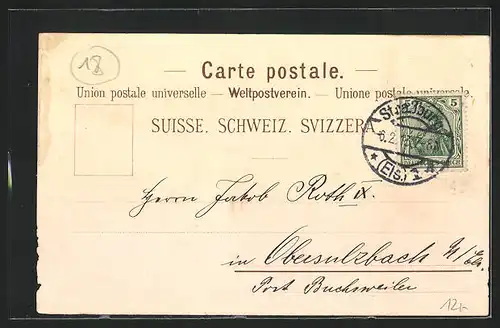 18
— Carte postale. —
Union postale universelle — Weltpostverein. — Unione postale universale.
SUISSE. SCHWEIZ. SVIZZERA.
5
Straßburg
6.2.
* (Els.) 1 *
Herrn Jakob Roth IX.
in Obersulzbach U/Els.
Post Buchsweiler
12,-